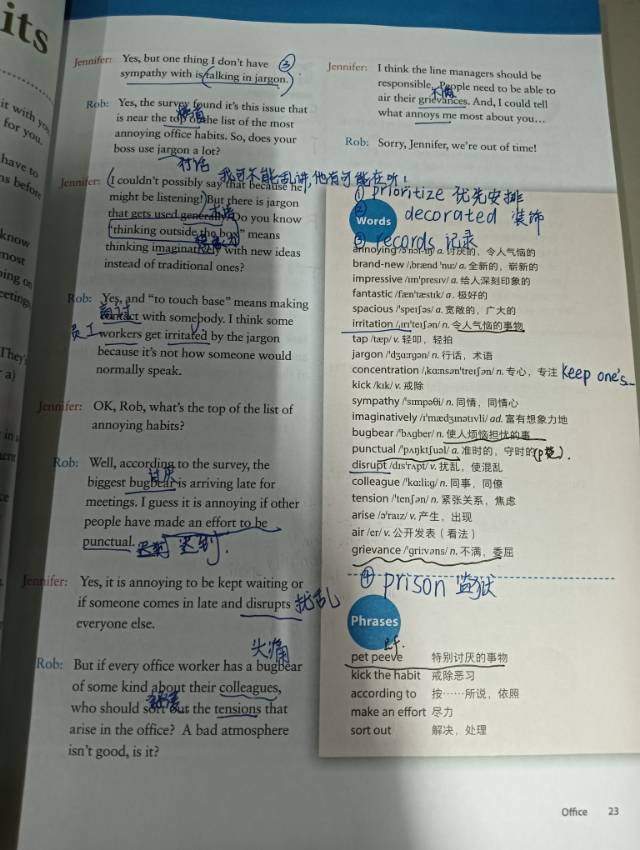 its
it with you
for you.
have to
ns before
know
most
ing on
eeting
They
a)
Jennifer: Yes, but one thing I don't have
sympathy with is talking in jargon.
③
Rob: Yes, the survey found it's this issue that
is near the top of the list of the most
annoying office habits. So, does your
boss use jargon a lot?
行话
我可不能乱讲,他有可能在听!
Jennifer: I couldn't possibly say that because he
might be listening! But there is jargon
that gets used generally. Do you know
"thinking outside the box" means
thinking imaginatively with new ideas
instead of traditional ones?
Rob: Yes, and "to touch base" means making
contact with somebody. I think some
员工
workers get irritated by the jargon
because it's not how someone would
normally speak.
Jennifer: OK, Rob, what's the top of the list of
annoying habits?
Rob: Well, according to the survey, the
biggest bugbear is arriving late for
meetings. I guess it is annoying if other
people have made an effort to be
punctual.
迟到.
Jennifer: Yes, it is annoying to be kept waiting or
if someone comes in late and disrupts 扰乱
everyone else.
头痛
Rob: But if every office worker has a bugbear
of some kind about their colleagues,
who should sort out the tensions that
arise in the office? A bad atmosphere
isn't good, is it?
Jennifer: I think the line managers should be
responsible. People need to be able to
不满
air their grievances. And, I could tell
what annoys me most about you…
Rob: Sorry, Jennifer, we're out of time!
① prioritize 优先安排
② decorated 装饰
③ records 记录
Words
annoying /ə'nɔɪ-ɪŋ/ a. 讨厌的，令人气恼的
brand-new /ˌbrænd 'njuː/ a. 全新的，崭新的
impressive /ɪm'presɪv/ a. 给人深刻印象的
fantastic /fæn'tæstɪk/ a. 极好的
spacious /'speɪʃəs/ a. 宽敞的，广大的
irritation /ˌɪrɪ'teɪʃən/ n. 令人气恼的事物
tap /tæp/ v. 轻叩，轻拍
jargon /'dʒɑːrgən/ n. 行话，术语
concentration /ˌkɑːnsən'treɪʃən/ n. 专心，专注 keep one's
kick /kɪk/ v. 戒除
sympathy /'sɪmpəθi/ n. 同情，同情心
imaginatively /ɪ'mædʒɪnətɪvli/ ad. 富有想象力地
bugbear /'bʌgber/ n. 使人烦恼担忧的事
punctual /'pʌŋktʃuəl/ a. 准时的，守时的
disrupt /dɪs'rʌpt/ v. 扰乱，使混乱
colleague /'kɑːliːg/ n. 同事，同僚
tension /'tenʃən/ n. 紧张关系，焦虑
arise /ə'raɪz/ v. 产生，出现
air /er/ v. 公开发表（看法）
grievance /'griːvəns/ n. 不满，委屈
④ prison 监狱
Phrases
pet peeve 特别讨厌的事物
kick the habit 戒除恶习
according to 按……所说，依照
make an effort 尽力
sort out 解决，处理
Office 23